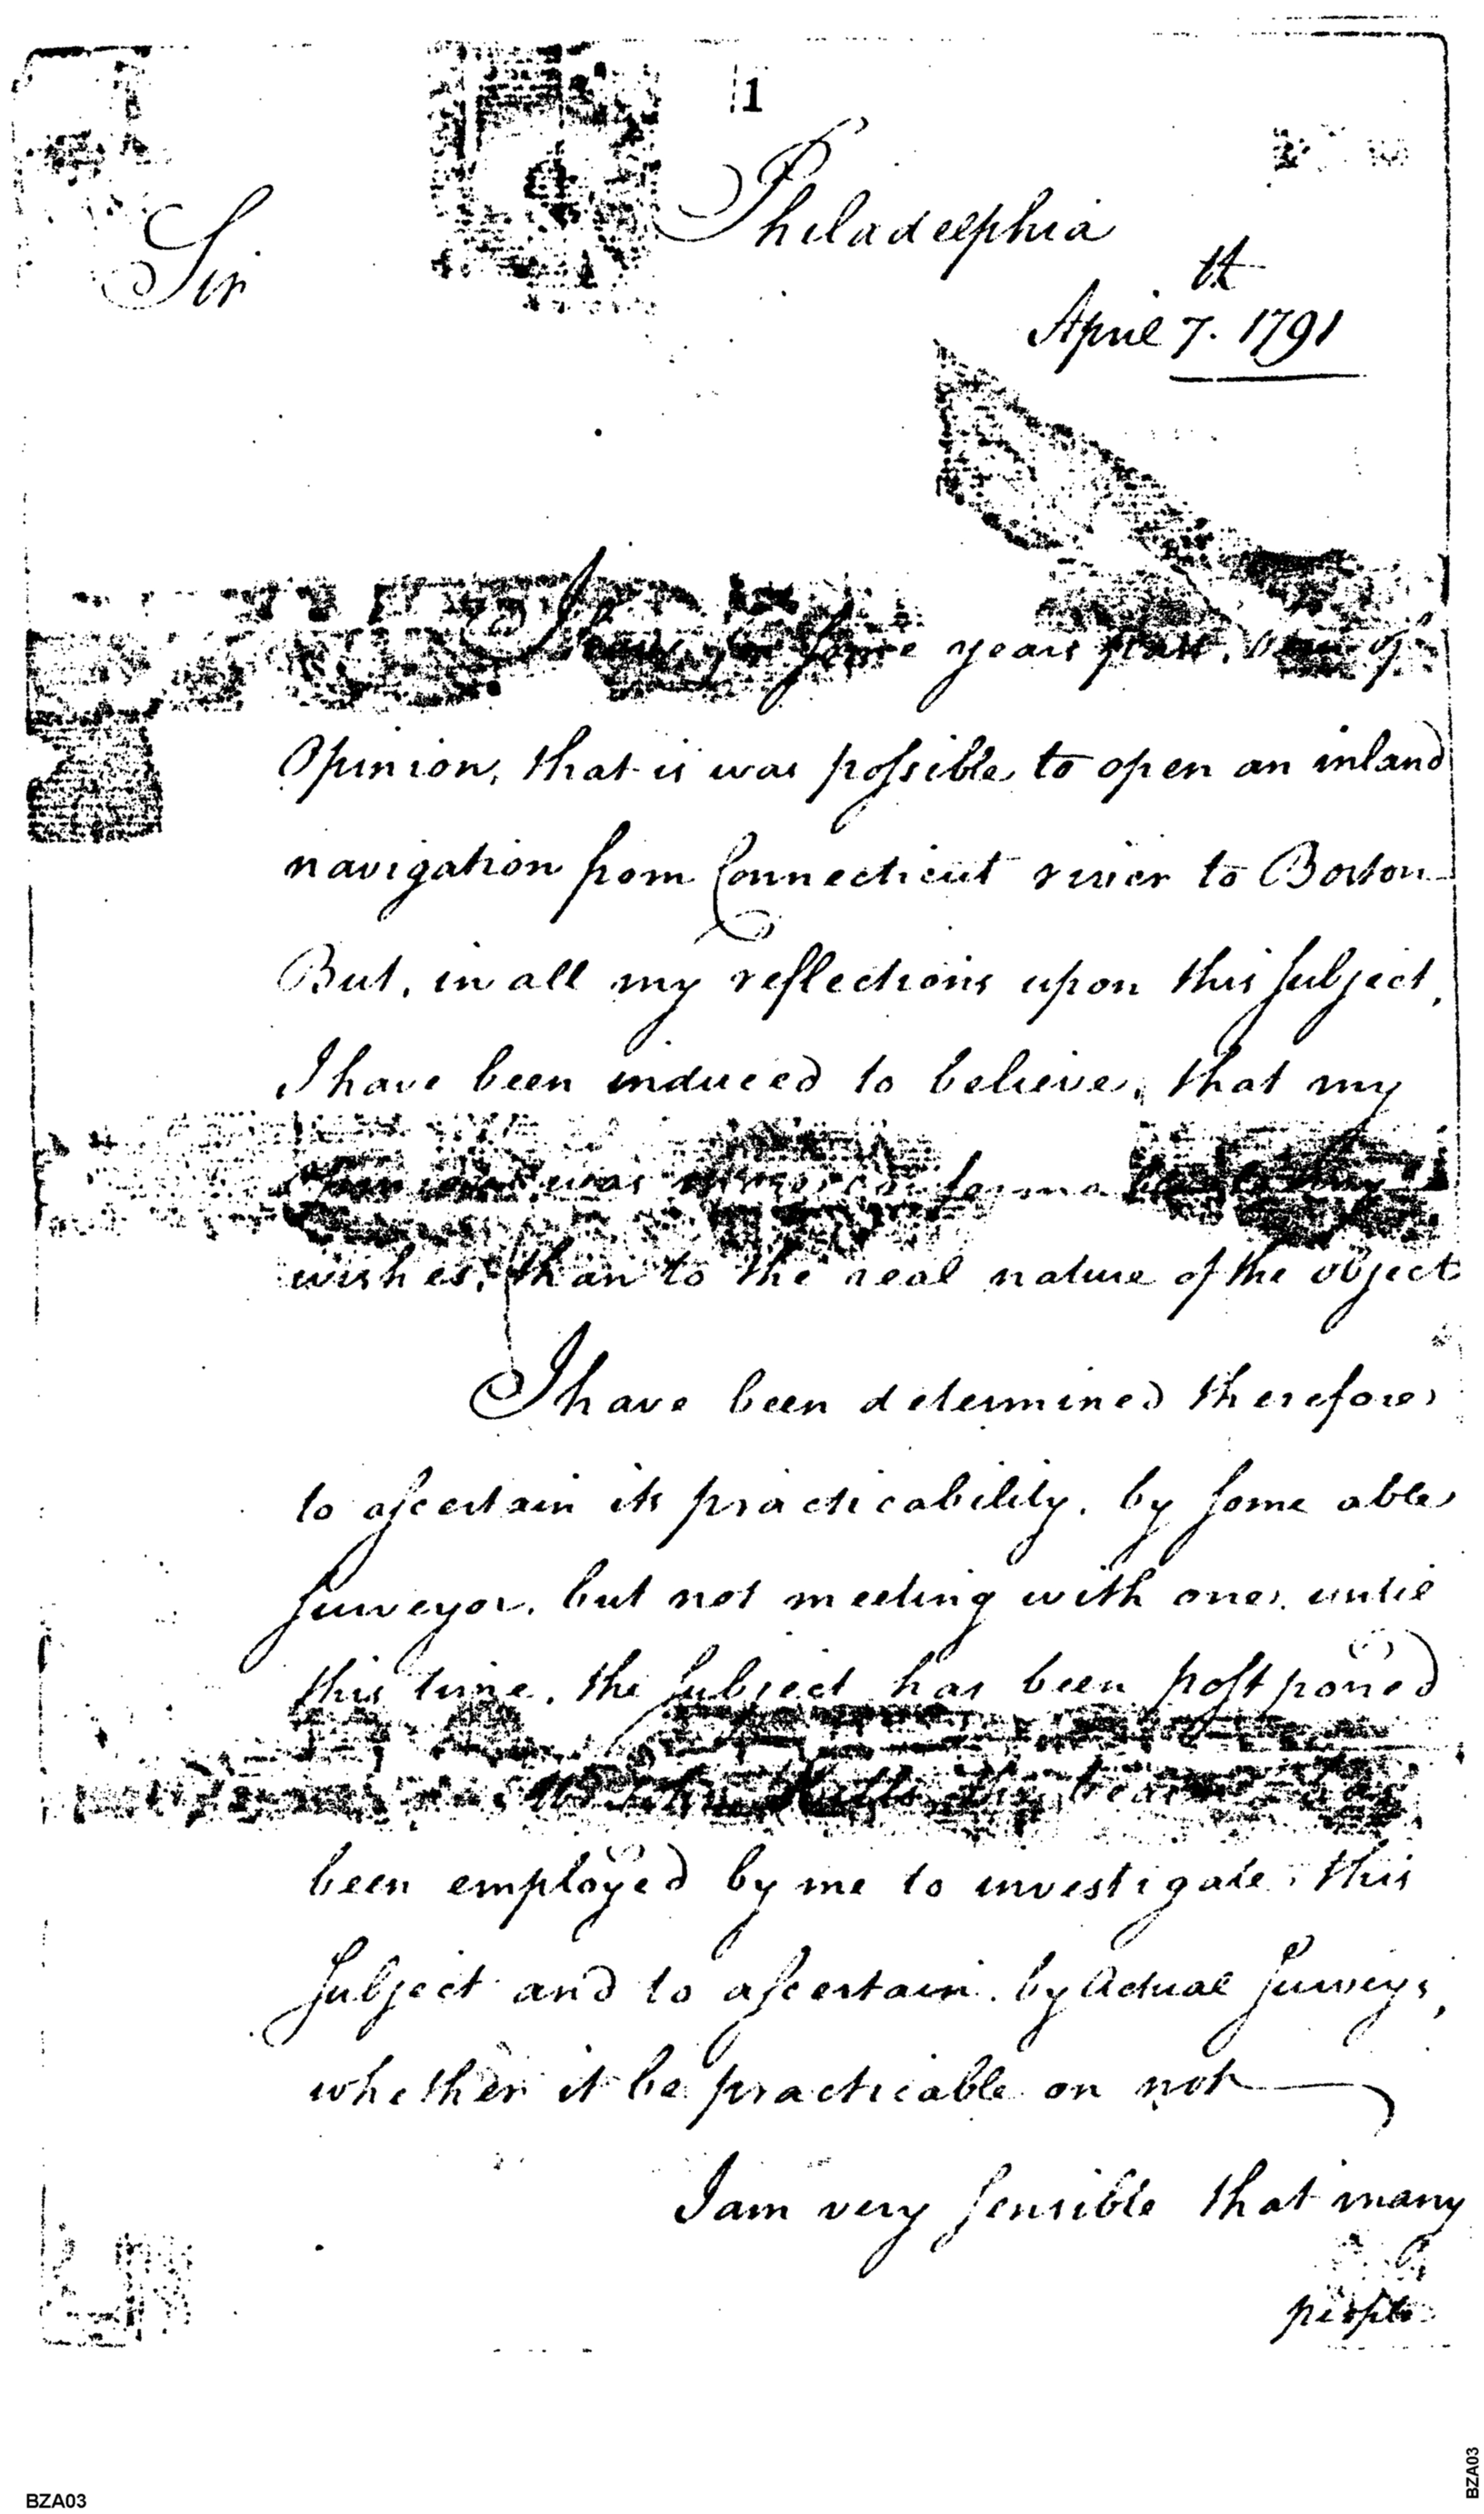 1
Philadelphia
Sir
April 7.th 1791
I have for some years past, been of
Opinion, that is was possible to open an inland
navigation from Connecticut river to Boston
But, in all my reflections upon this subject,
I have been induced to believe, that my
opinion was more conformable to my
wishes, than to the real nature of the object
I have been determined therefore
to ascertain its practicability, by some able
surveyor, but not meeting with one, until
this time, the subject has been postponed
has
been employed by me to investigate this
subject and to ascertain by Actual surveys,
whether it be practicable or not
I am very sensible that many
people
BZA03
BZA03